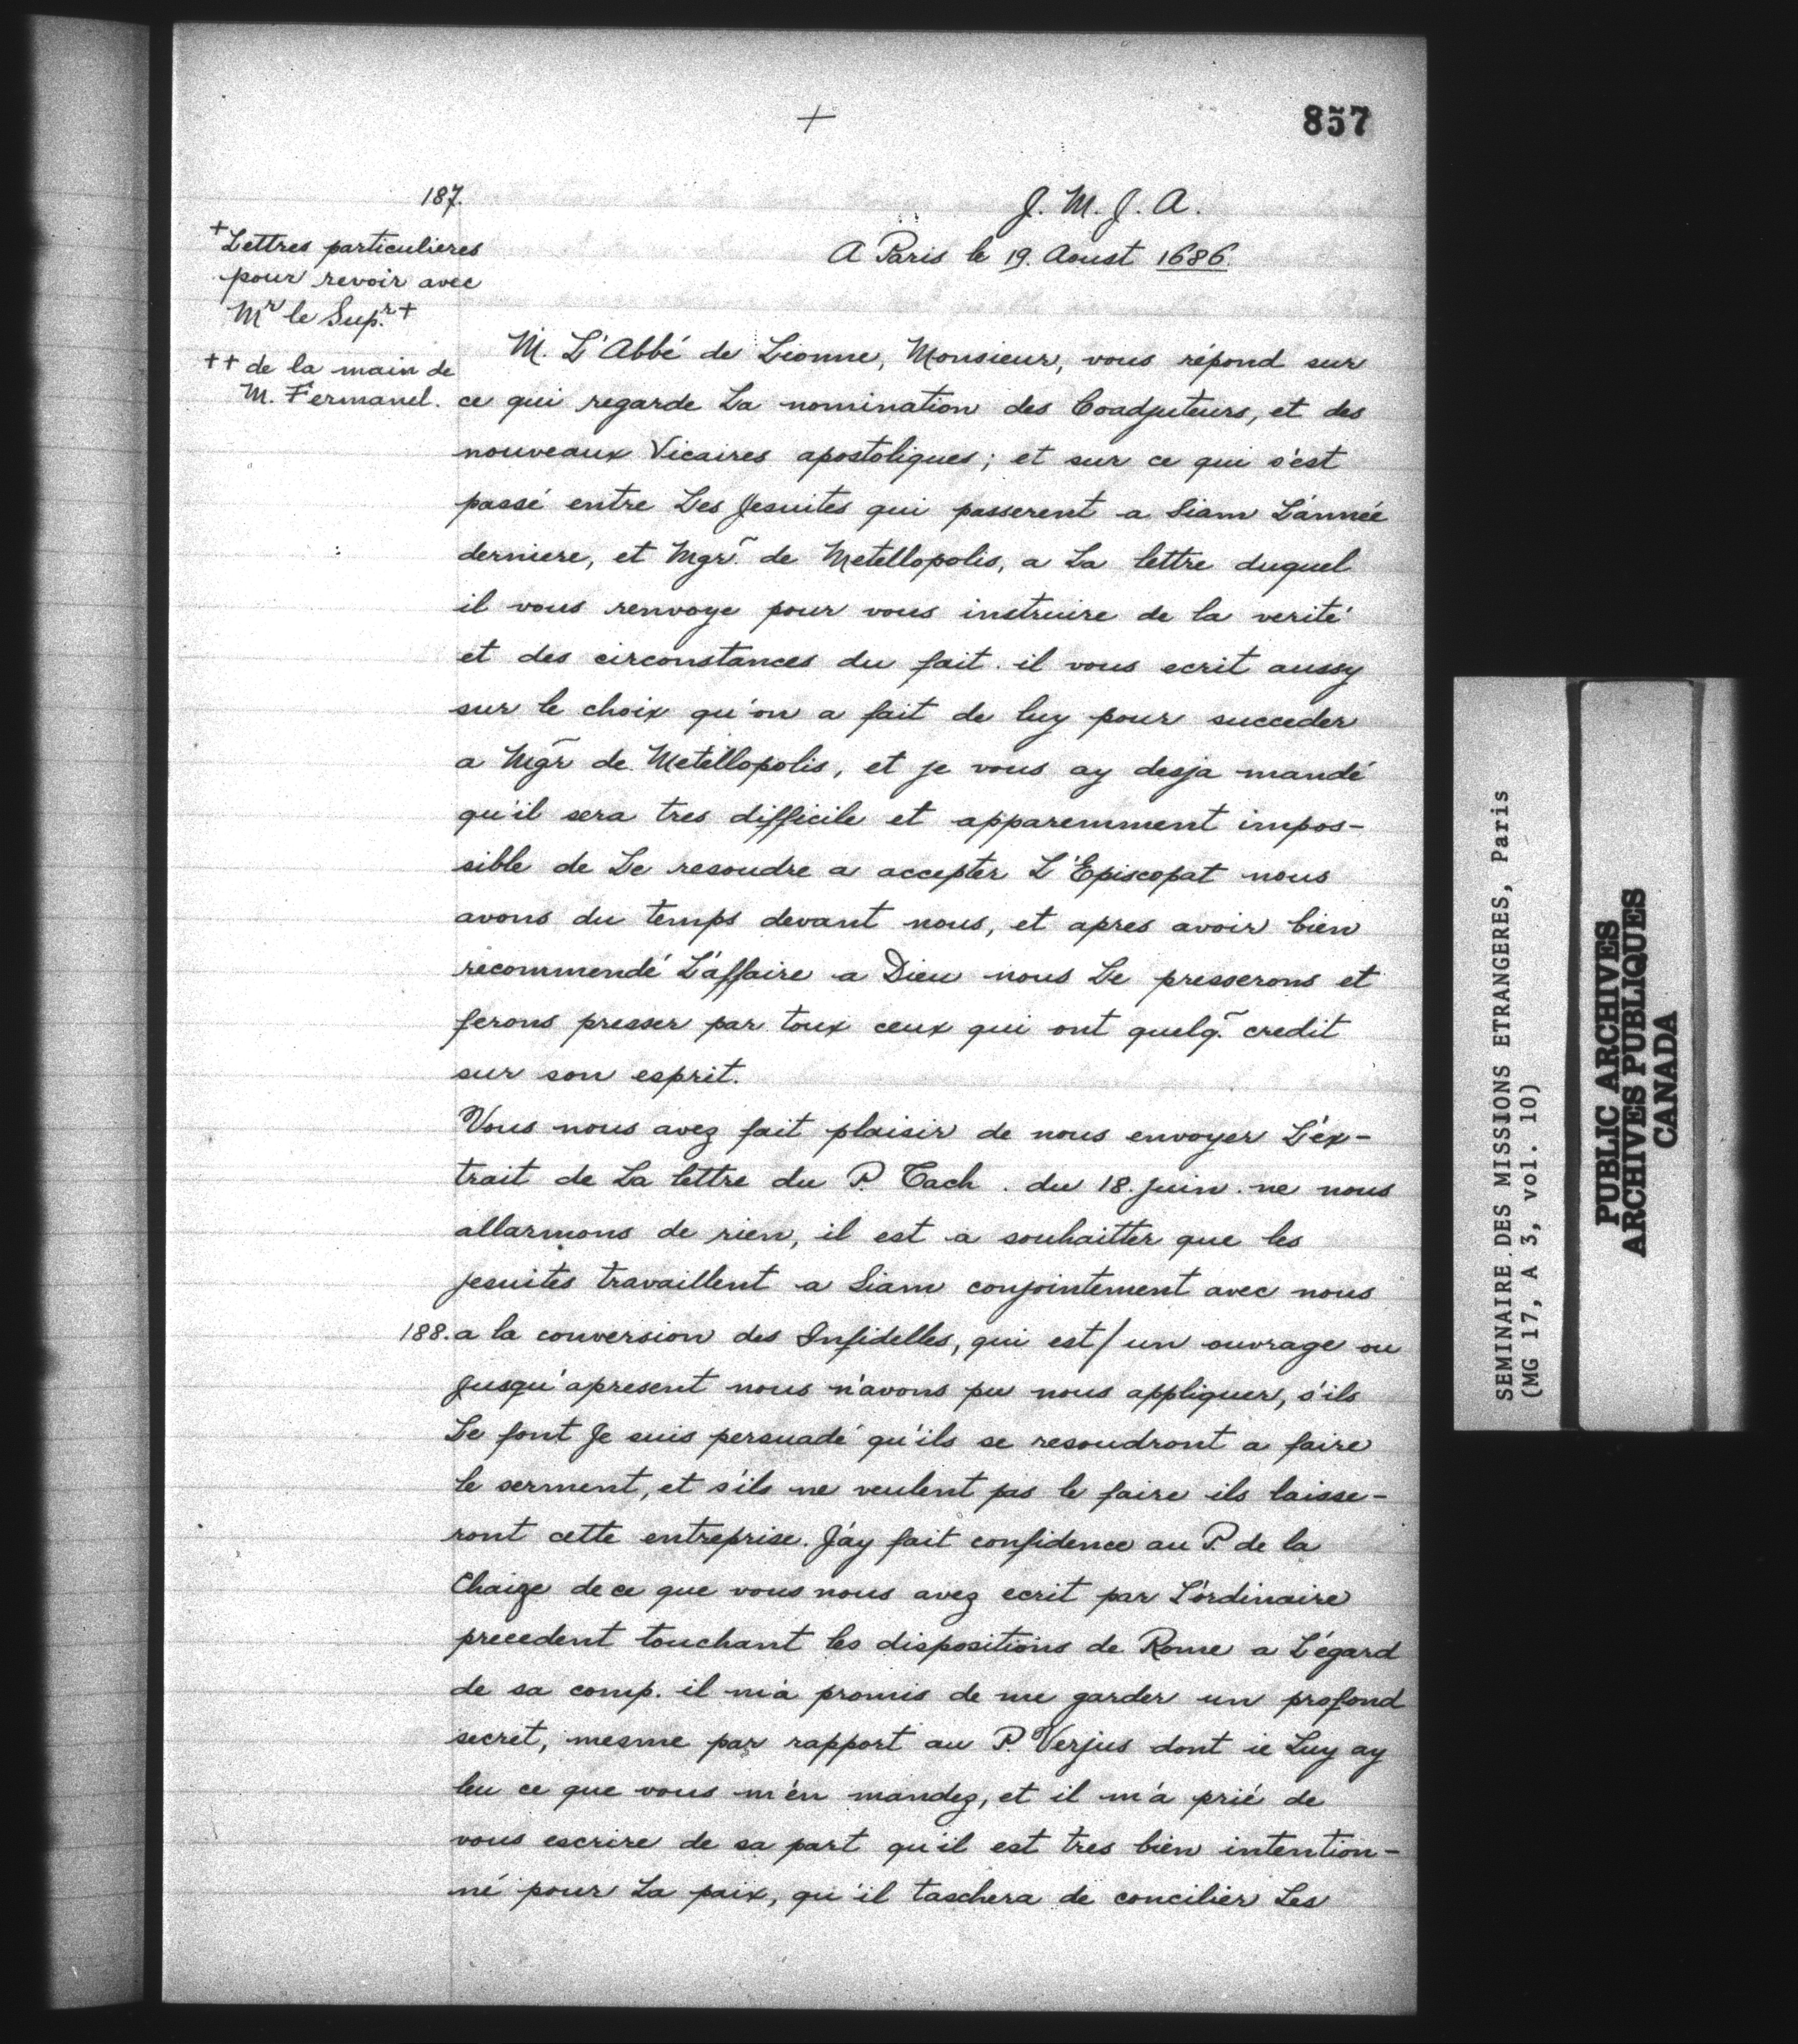 +
857
187.
J. M. J. A.
A Paris le 19. Aoust 1686.
+Lettres particulieres
pour revoir avec
Mr le Supr. +
++ de la main de
M. Fermanel.
M. L'Abbé de Lionne, Monsieur, vous répond sur
ce qui regarde La nomination des Coadjuteurs, et des
nouveaux Vicaires apostoliques; et sur ce qui s'est
passé entre Les Jesuites qui passerent a Siam L'année
derniere, et Mgr. de Metellopolis, a La lettre duquel
il vous renvoye pour vous instruire de la verité
et des circonstances du fait. il vous ecrit aussy
sur le choix qu'on a fait de luy pour succeder
a Mgr de Metellopolis, et je vous ay desja mandé
qu'il sera tres difficile et apparemment impos-
sible de Le resoudre a accepter L'Episcopat nous
avons du temps devant nous, et apres avoir bien
recommendé L'affaire a Dieu nous Le presserons et
ferons presser par toux ceux qui ont quelq̃. credit
sur son esprit.
Vous nous avez fait plaisir de nous envoyer L'ex-
trait de La lettre du P. Tach. du 18. juin. ne nous
allarmons de rien, il est a souhaitter que les
jesuites travaillent a Siam conjointement avec nous
188. a la conversion des Infidelles, qui est/ un ouvrage ou
Jusqu'apresent nous n'avons pu nous appliquer, s'ils
Le font Je suis persuadé qu'ils se resoudront a faire
le serment, et s'ils ne veulent pas le faire ils laisse-
ront cette entreprise. J'ay fait confidence au P. de la
Chaize de ce que vous nous avez ecrit par L'ordinaire
precedent touchant les dispositions de Rome a L'égard
de sa comp. il m'a promis de me garder un profond
secret, mesme par rapport au P. Verjus dont ie Luy ay
leu ce que vous m'en mandez, et il m'a prié de
vous escrire de sa part qu'il est tres bien intention-
né pour La paix, qu'il taschera de concilier Les
SEMINAIRE DES MISSIONS ETRANGERES, Paris
(MG 17, A 3, vol. 10)
PUBLIC ARCHIVES
ARCHIVES PUBLIQUES
CANADA